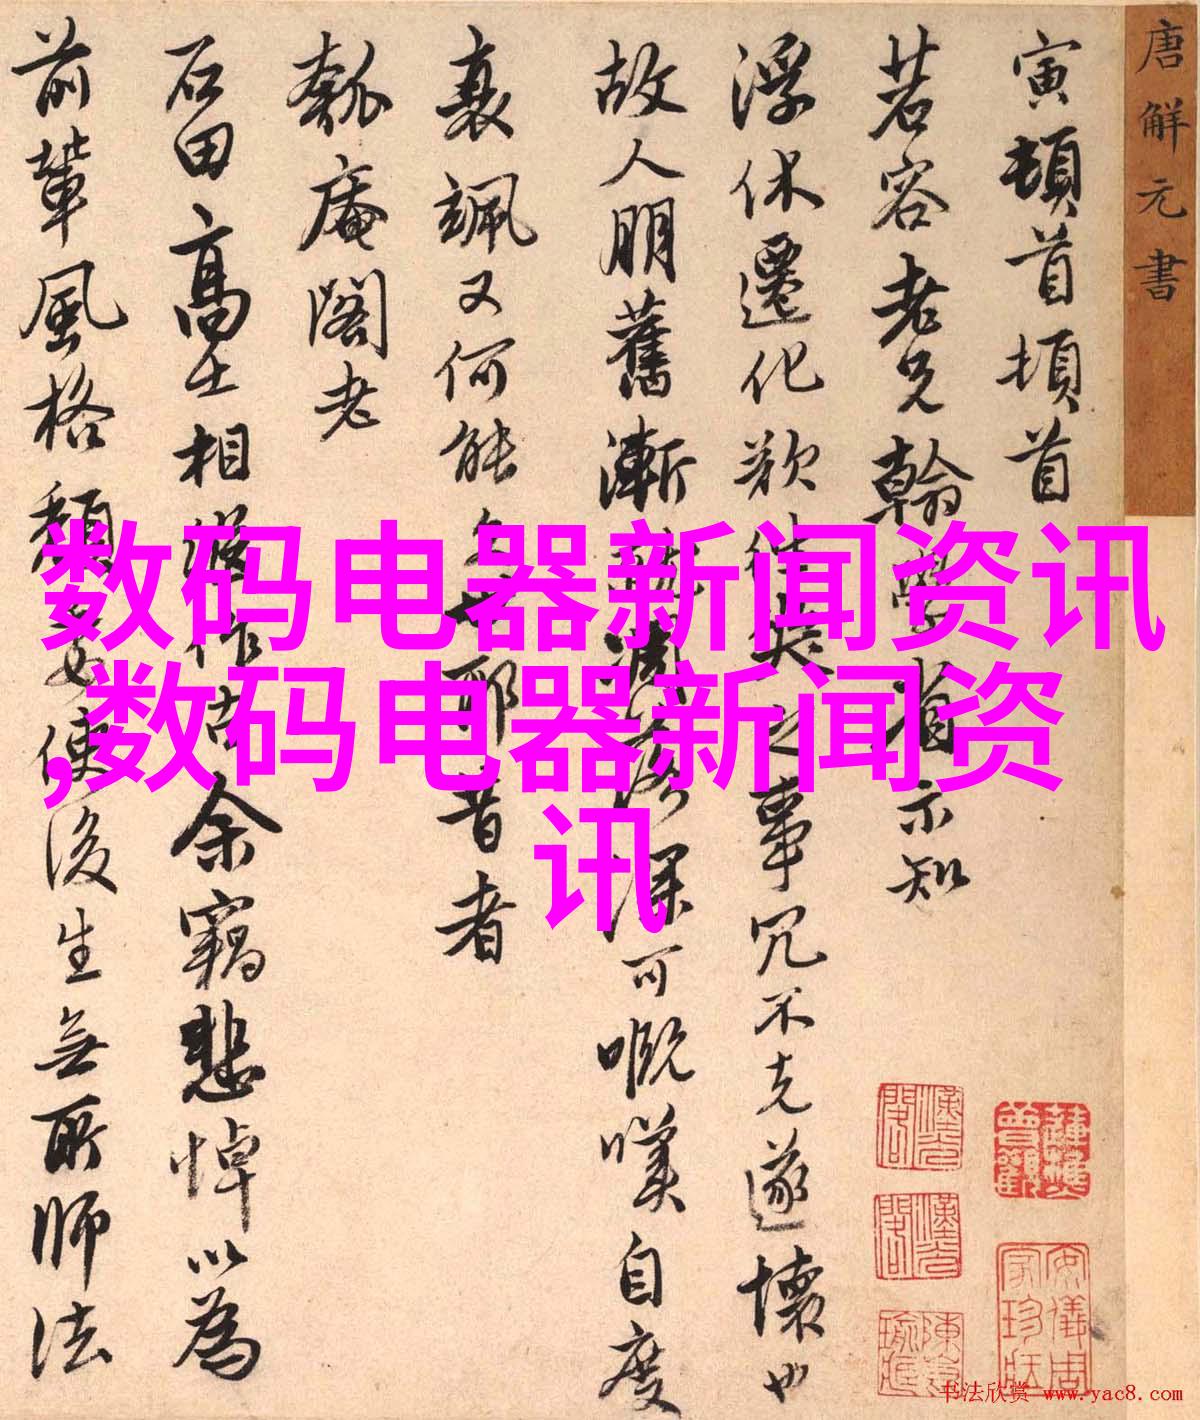 唐解元書
寅頓首頓首
茗容老兄翰 示知
浮休遷化歘 之事冗不克遂懷也
故人朋舊漸 可嘅嘆自度
衰颯又何能 耶昔者
瓠庵閣老
石田高士相 作古余竊悲悼以為
前輩風格 使後生無所師法
数码电器新闻资讯
,数码电器新闻资
讯
书法欣赏 www.yac8.com